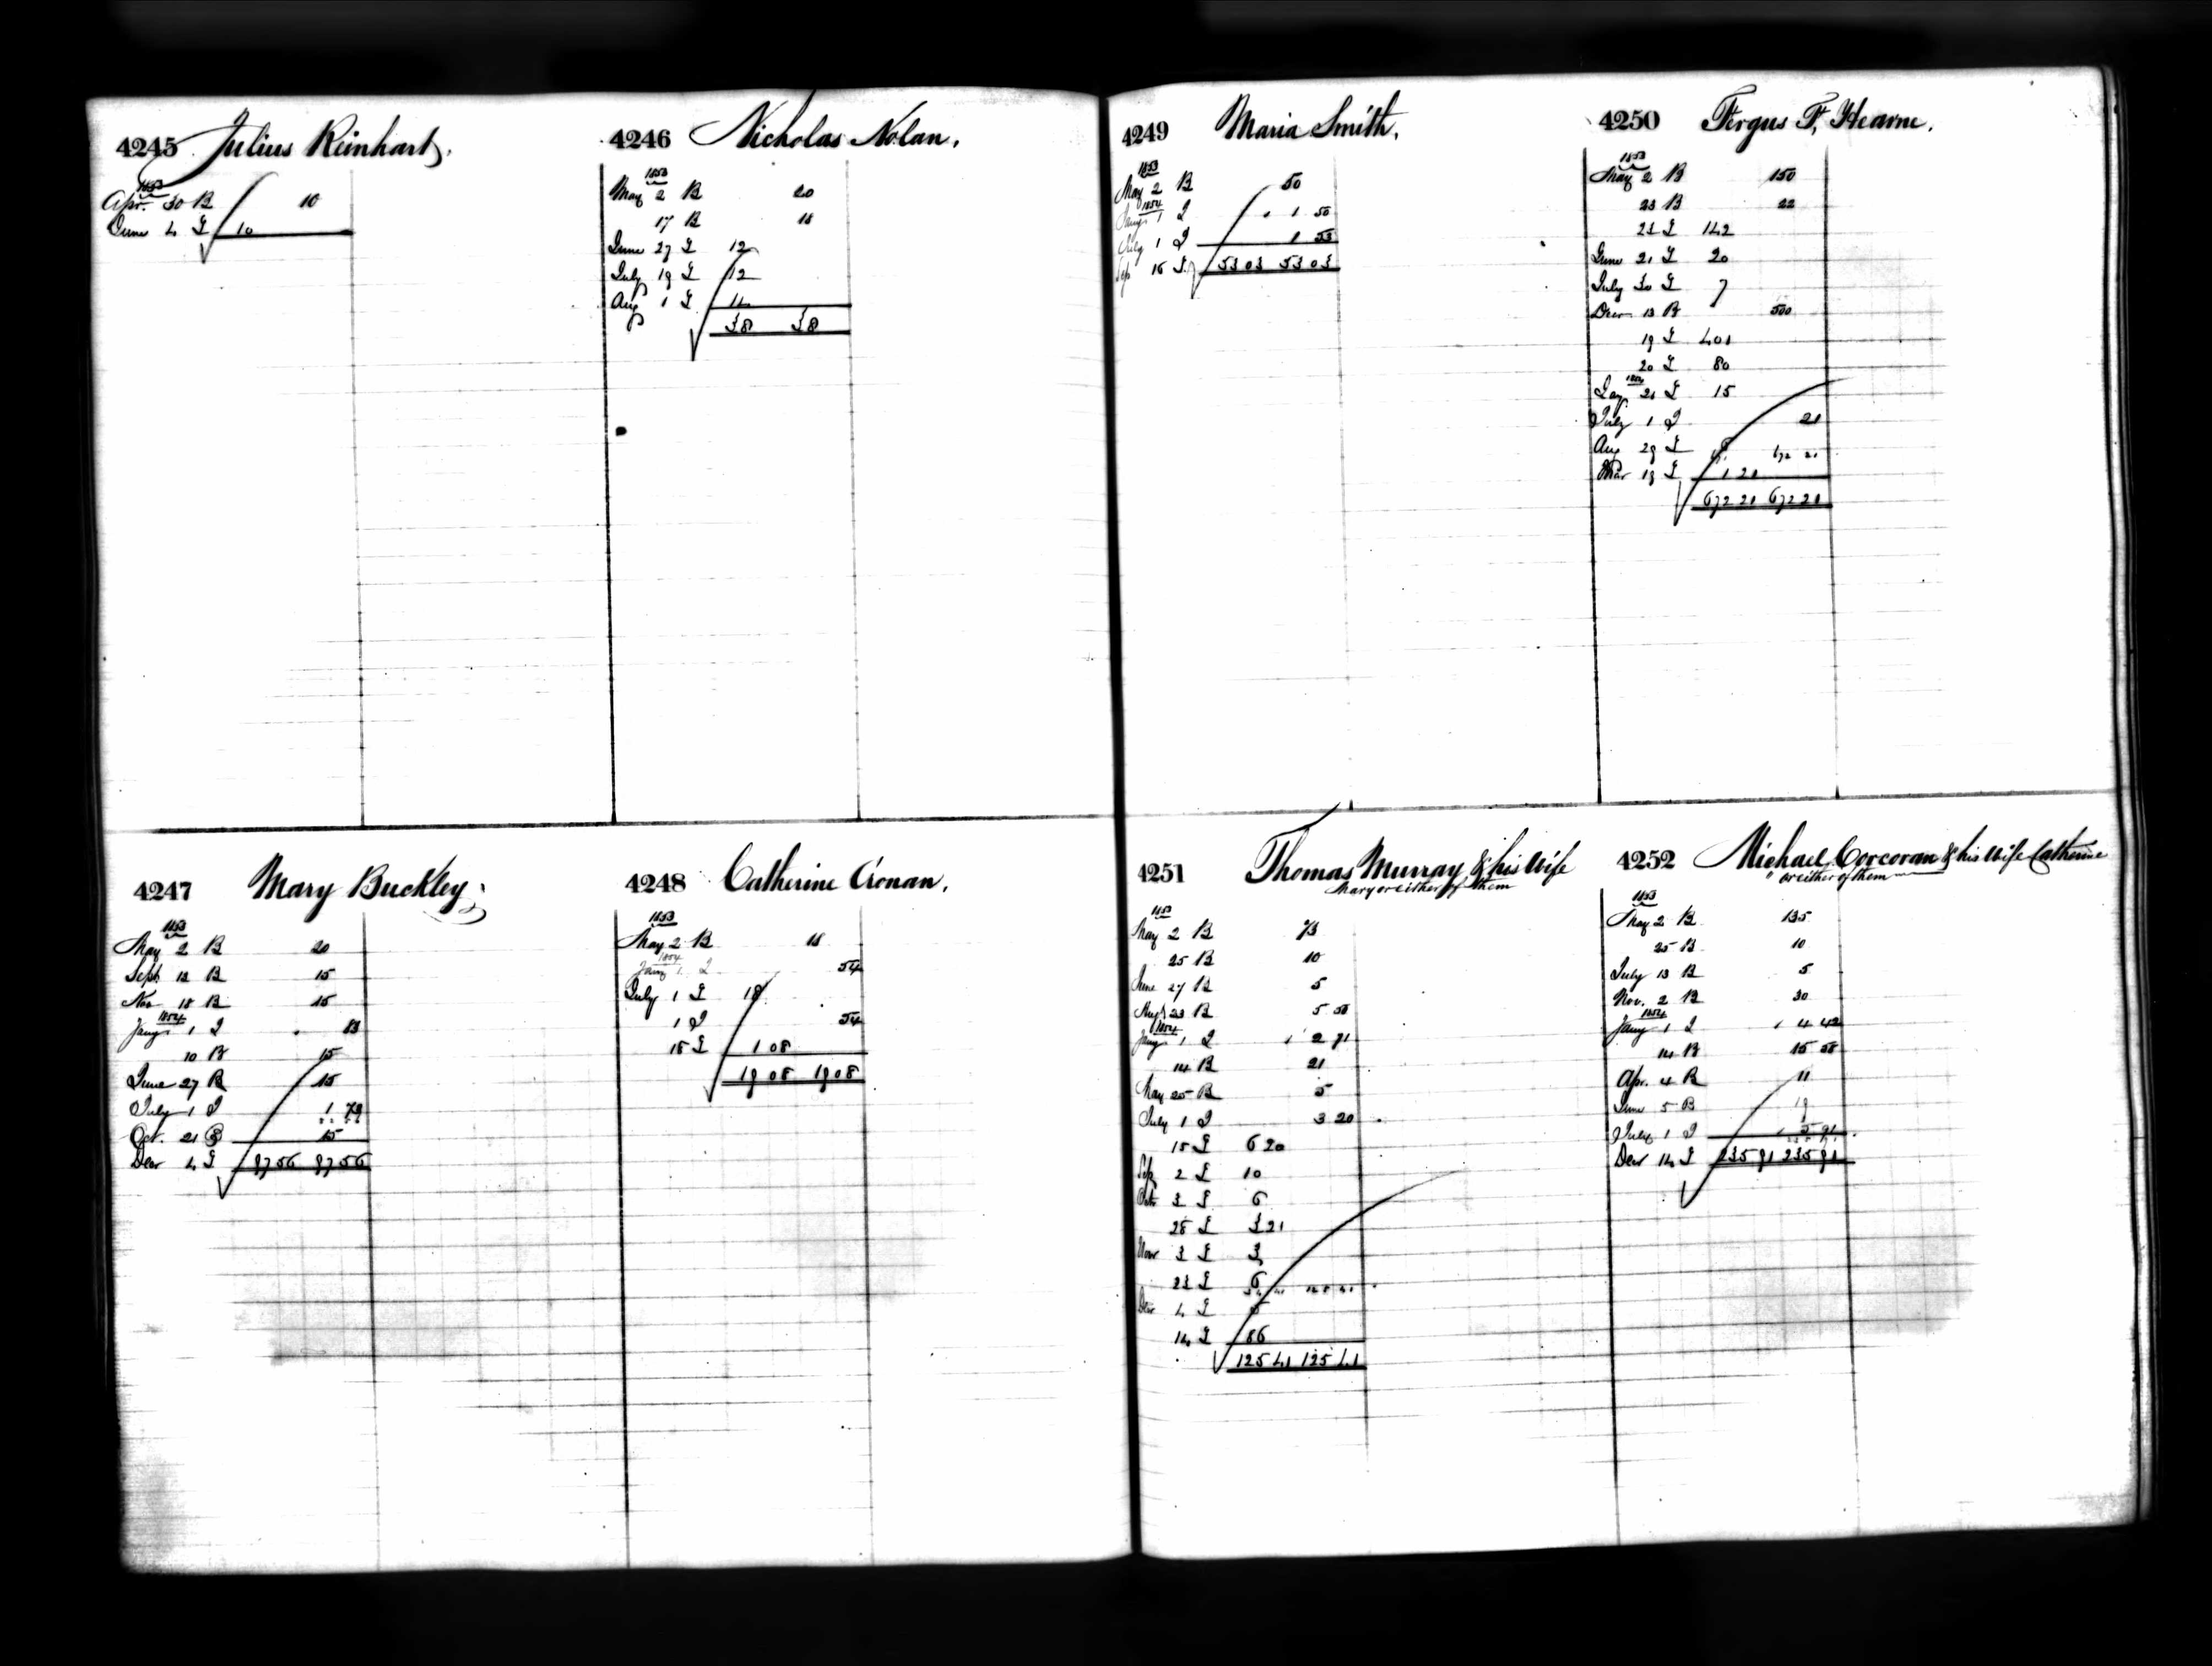 4245 Julius Reinhart.
1853
Apr. 30 B 10
June 4 £ 10
4246 Nicholas Nolan.
1853
May 2 B 20
17 B 18
June 27 £ 12
July 19 £ 12
Aug 1 £ 14
38 38
4247 Mary Buckley.
1853
May 2 B 20
Sept 12 B 15
Nov 18 B 15
1854
Jany 1 I 83
10 B 15
June 27 B 15
July 1 I 1 73
Oct. 21 B 15
Decr 4 £ 97 56 97 56
4248 Catherine Cronan.
1853
May 2 B 18
1854
Jany 1 I 54
July 1 £ 18
1 I 54
18 £ 1 08
19 08 19 08
4249 Maria Smith.
1853
May 2 B 50
1854
Jany 1 I 1 50
July 1 I 1 53
Sep 16 £ 53 03 53 03
4250 Fergus F. Hearne.
1853
May 2 B 150
23 B 22
23 £ 142
June 21 £ 20
July 30 £ 7
Decr 13 B 500
19 £ 401
20 £ 80
1854
Jany 21 £ 15
July 1 I 21
Aug 29 £ 672 21
Mar 19 £ 1 21
672 21 672 21
4251 Thomas Murray & his Wife
Mary or either of them
1853
May 2 B 73
25 B 10
June 27 B 5
Augt 23 B 5 50
1854
Jany 1 I 2 71
14 B 21
May 25 B 5
July 1 I 3 20
15 £ 6 20
Sep 2 £ 10
Oct 3 £ 6
28 £ 3 21
Novr 3 £ 3
23 £ 6
Decr 4 £
14 £ 86
125 41 125 41
4252 Michael Corcoran & his Wife Catherine
" or either of them
1853
May 2 B 135
25 B 10
July 13 B 5
Nov. 2 B 30
1854
Jany 1 I 4 42
14 B 15 58
Apr. 4 B 11
June 5 B 19
July 1 I 5 91
Decr 14 £ 235 91 235 91